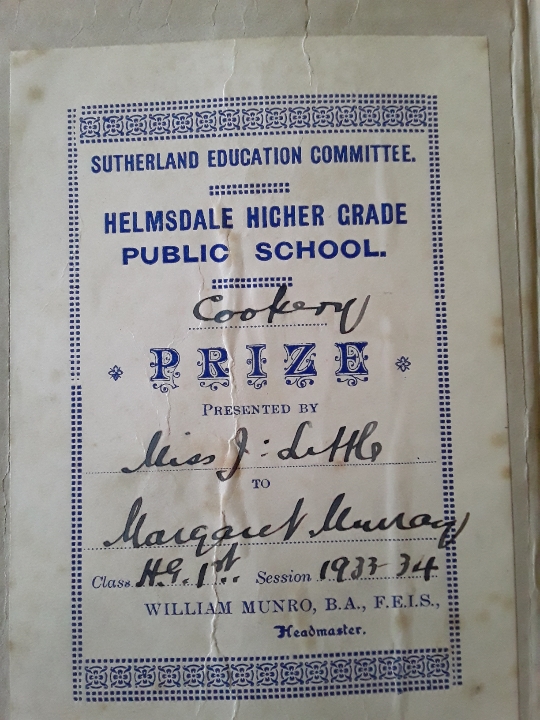 SUTHERLAND EDUCATION COMMITTEE.
HELMSDALE HIGHER GRADE
PUBLIC SCHOOL.
Cookery
PRIZE
PRESENTED BY
Miss J: Little
TO
Margaret Murray
Class H.G. 1st. Session 1933-34
WILLIAM MUNRO, B.A., F.E.I.S.,
Headmaster.